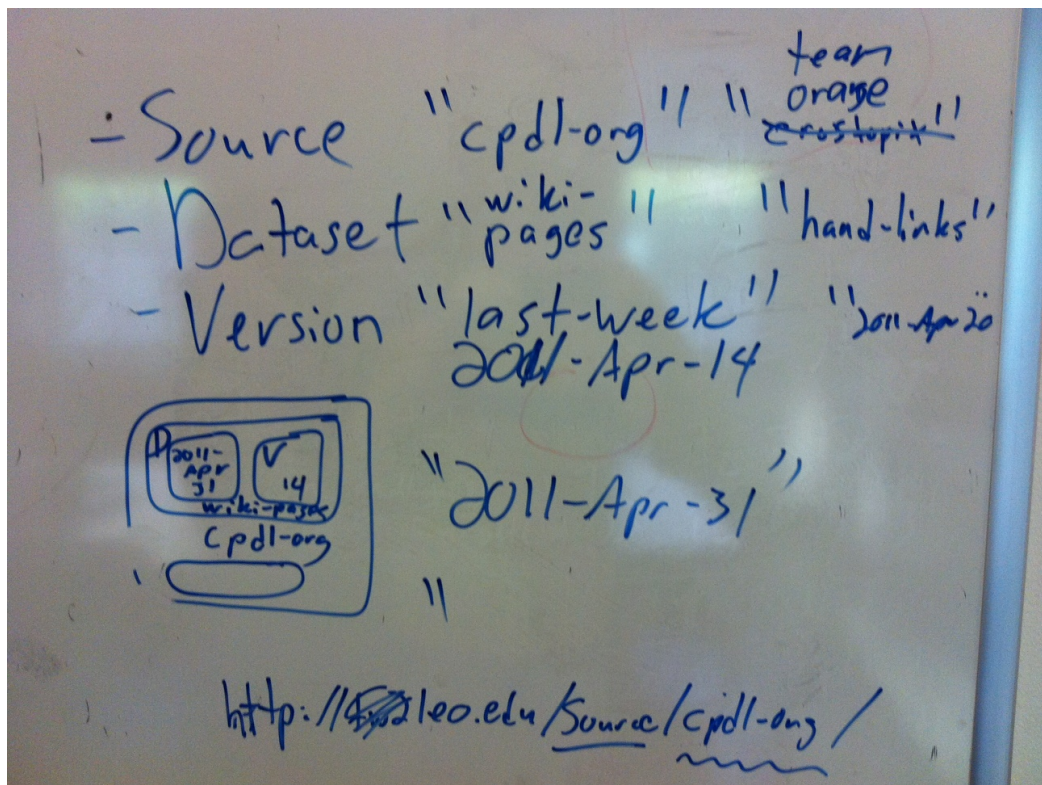 team
orange
- Source "cpdl-org" " "
- Dataset "wiki-pages" "hand-links"
- Version "last-week" "2011-Apr20"
2011-Apr-14
"2011-Apr-31"
"
D
2011-
Apr
31
V
14
wiki-pages
cpdl-org
http://leo.edu/source/cpdl-org/